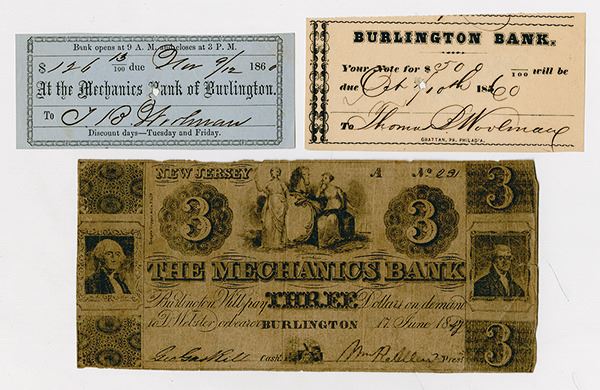 Bank opens at 9 A. M. and closes at 3 P. M.
$ 126 13/100 due Nov 9/12 1860
At the Mechanics Bank of Burlington.
To T B Wolman
Discount days—Tuesday and Friday.
BURLINGTON BANK.
Your Note for $ 500 /100 will be
due Oct 186 60
To Thomas S Woolman
GRATTAN, PR. PHILAD'A.
NEW JERSEY A No 291
3 3 3
THE MECHANICS BANK
Burlington Will pay THREE Dollars on demand
to D. Webster or bearer BURLINGTON 17 June 1849
Geo Gaskill Cash. Pres.
3